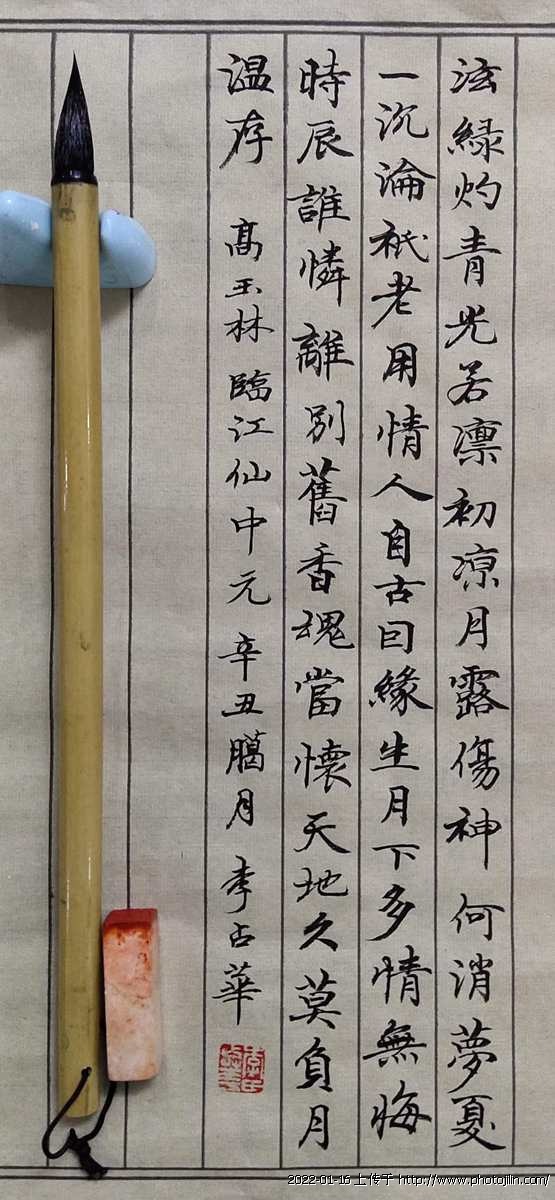 泫緑灼青光若凛初凉月露傷神何消夢戛
一沉淪衹老用情人自古曰緣生月下多情無悔
時辰誰憐離別舊香魂當懷天地久莫負月
温存 髙玉林臨江仙中元 辛丑臈月 李占華
2022-01-16 上传于 http://www.photojilin.com/